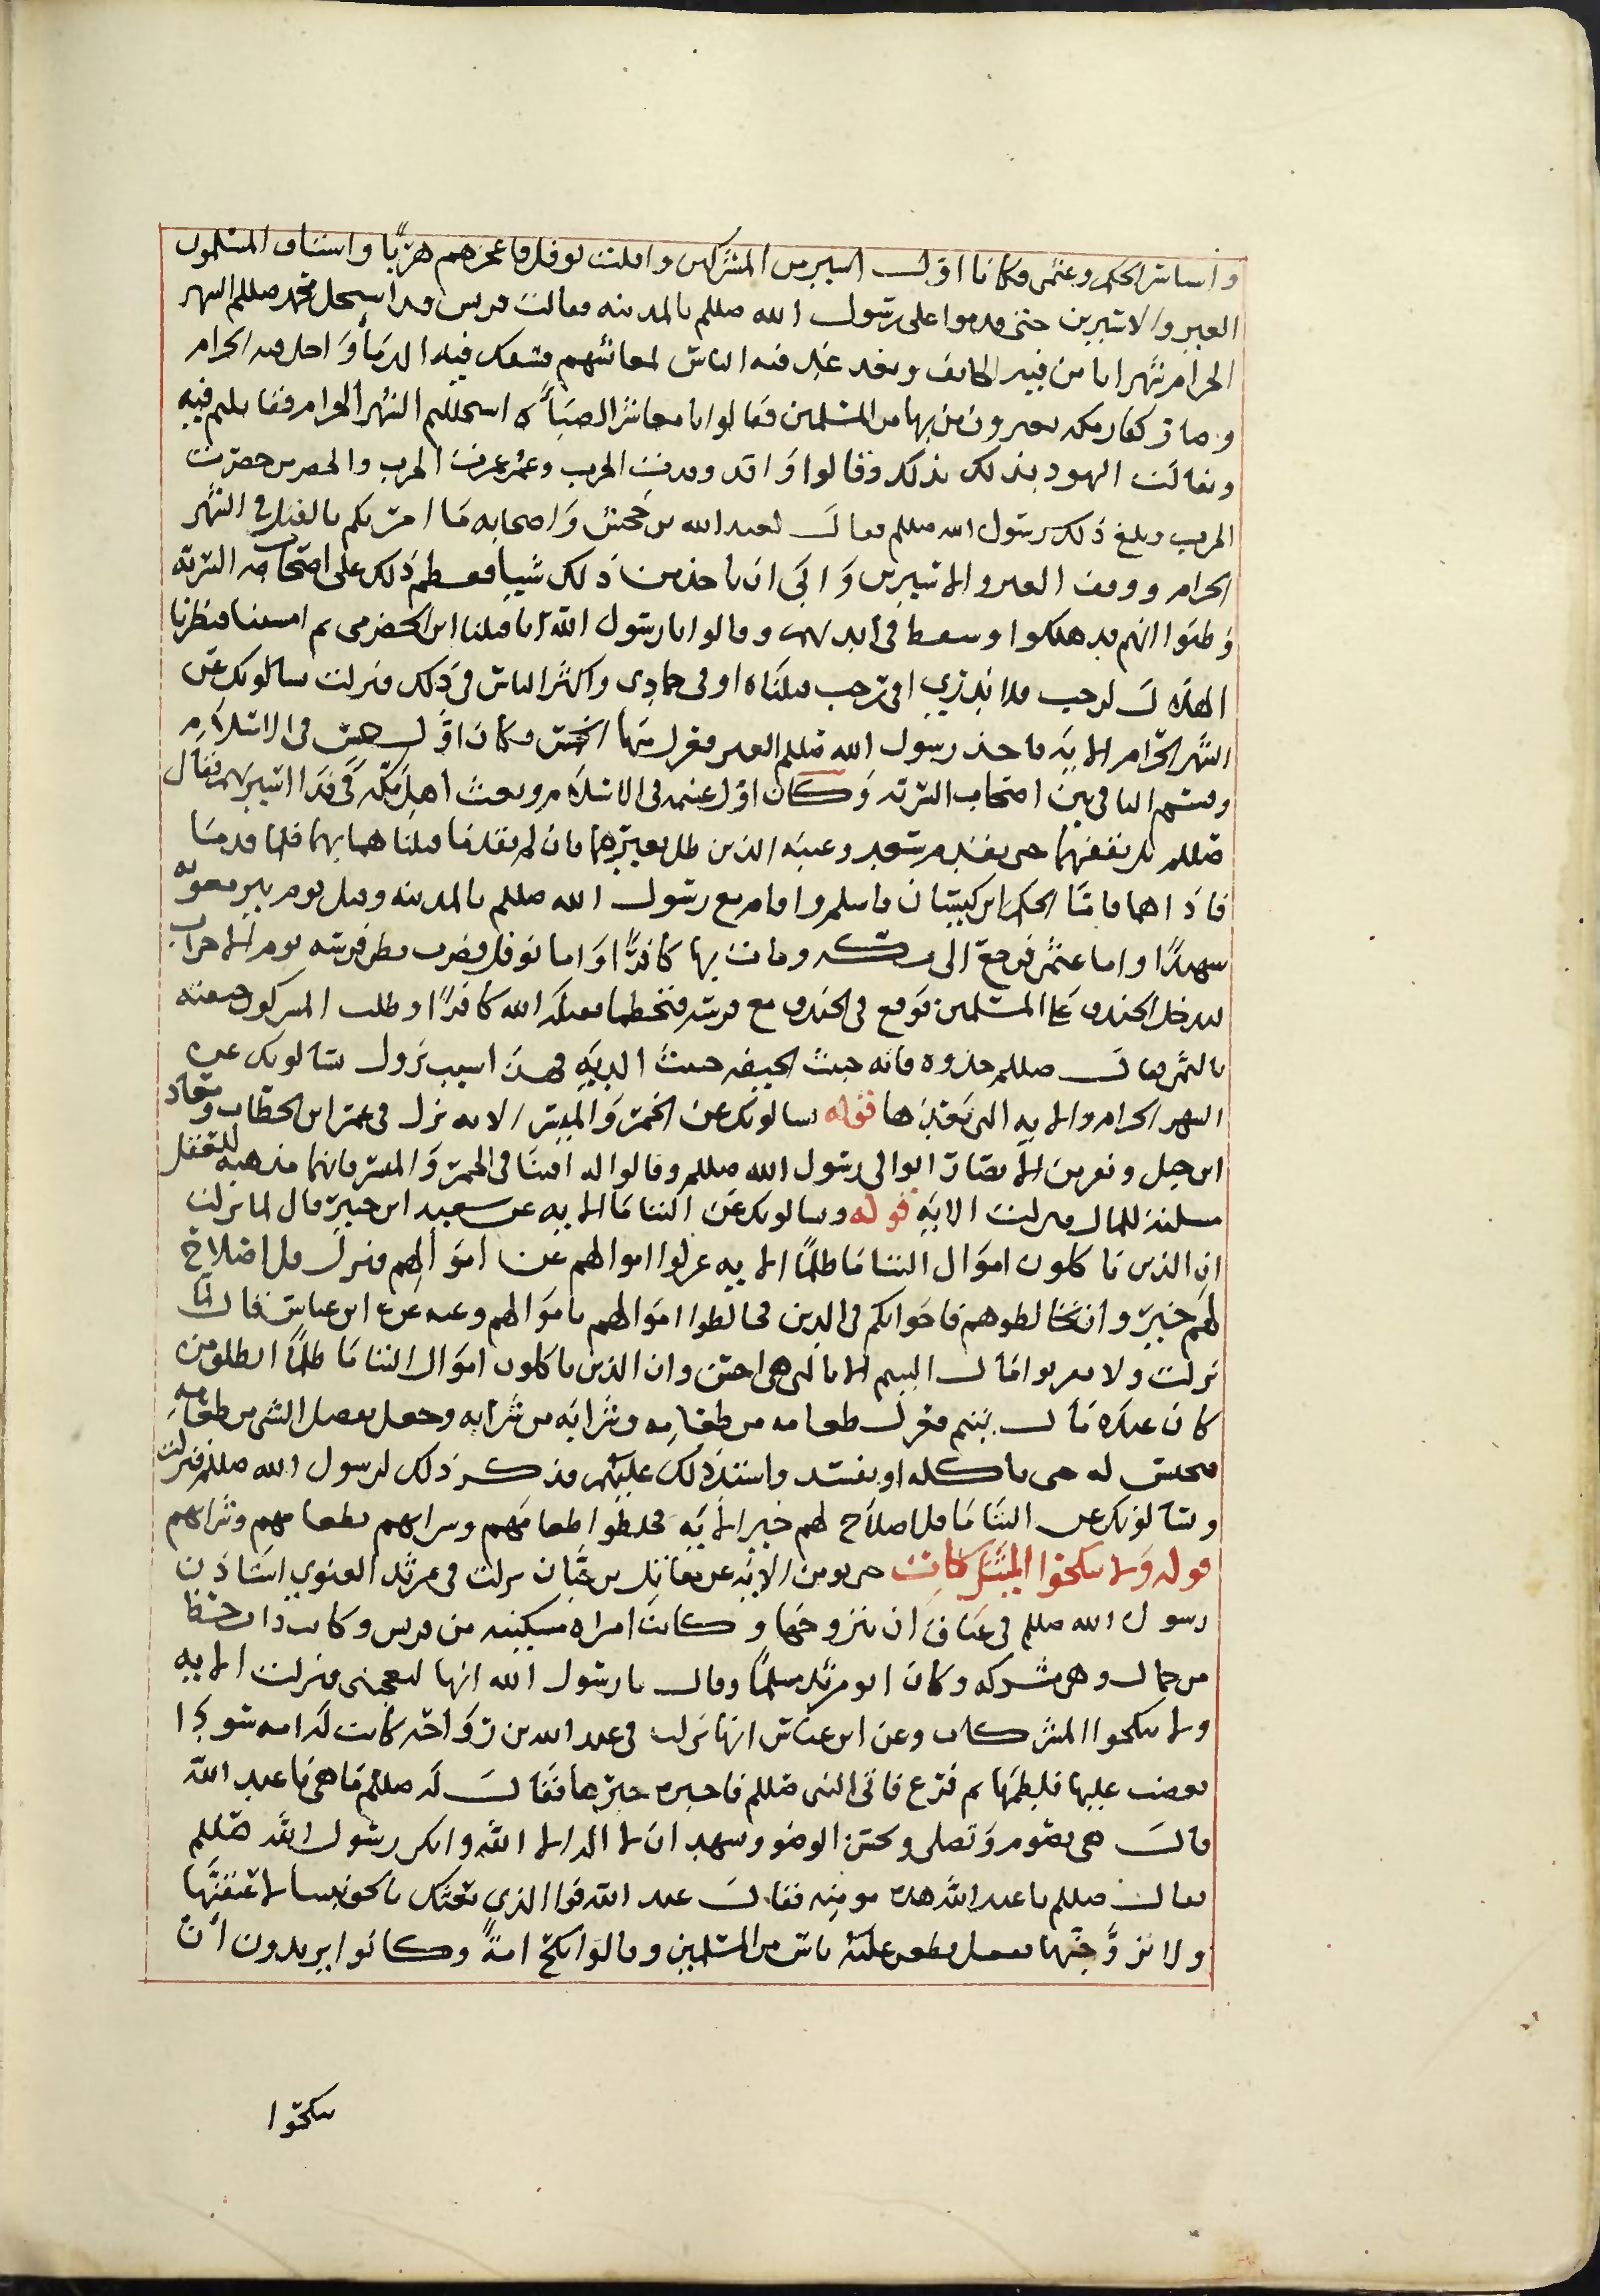 واستاسر الحكم وعثمن وكانا اول اسيرين من المشركين وافلت نوفل فاعجزهم هربًا واستاق المسلمون
العير والاسيرين حتى قدموا على رسول الله صللم بالمدينه فقالت قريس قد استحل محمد صللم الشهر
الحرام شهرا يامن فيه الخايف ويغد فيه الناس لمعائشهم فسفك فيه الدماء واحل فيه الحرام
وصار كفار مكه يعيرون من بها من المسلمين فقالوا يا معاشر الصباه استحللتم الشهر الحرام فقاتلتم فيه
وتفالت اليهود بذلك وقالوا واقد وقدت الحرب وعمر عمرت الحرب والحضرمى حضرت
الحرب وبلغ ذلك رسول الله صللم فقال لعبد الله بن جحش واصحابه ما امرتكم بالقتال في الشهر
الحرام ووقف العير والاسيرين وابى ان ياخذ من ذلك شيا فعظم ذلك على اصحاب السريه
وظنوا انهم قد هلكوا وسقط في ايديهم وقالوا يا رسول الله انا قتلنا ابن الحضرمي ثم امسينا فنظرنا
الهلال لرجب فلا ندري افي رجب قتلناه او في جمادى واكثر الناس في ذلك فنزلت يسالونك عن
الشهر الحرام الايه فاخذ رسول الله صللم العير فعزل منها الخمس وكان اول خمس في الاسلام
وقسم الباقي بين اصحاب السريه وكان اول غنيمه في الاسلام وبعث اهل مكه في فدا اسيريهم فقال
صللم بل نقفهما حتى يقدم سعد وعتبه الذين ظل بعيرهما فان لم يقدما قتلنا هما بهما فلما قدما
فاذاهما فاما الحكم ابن كيسان فاسلم واقام مع رسول الله صللم بالمدينه وقتل يوم بير معونه
شهيدًا واما عثمن فرجع الى مكه ومات بها كافرًا واما نوفل فضرب بطن فرسه يوم الاحزاب
ليدخل الخندق على المسلمين فوقع في الخندق مع فرسه فتحطما فقتله الله كافرًا وطلب المشركون جيفته
بالثمن فقال صللم خذوه فانه خبيث الجيفه خبيث الديه فهذا سبب نزول يسالونك عن
الشهر الحرام والايه التي بعدها قوله يسالونك عن الخمر والميسر الايه نزل في عمر ابن الخطاب ومعاذ
ابن جبل ونفر من الانصار اتوا الى رسول الله صللم وقالوا له افتنا في الخمر والميسر فانهما مذهبه للعقل
مسلبه للمال فنزلت الايه قوله ويسالونك عن اليتاما الايه عن سعيد ابن جبير قال لما نزلت
ان الذين ياكلون اموال اليتاما ظلمًا الايه عزلوا اموالهم عن اموالهم فنزل قل اصلاح
لهم خير وان تخالطوهم فاخوانكم في الدين فخالطوا اموالهم باموالهم وعنه عن ابن عباس قال لما
نزلت ولا تقربوا مال اليتيم الا بالتي هي احسن وان الذين ياكلون اموال اليتاما ظلمًا انطلق من
كان عنده مال يتيم فعزل طعامه من طعامه وشرابه من شرابه وجعل يفضل الشي من طعامه
فيحبس له حتى ياكله او يفسد واشتد ذلك عليهم فذكر ذلك لرسول الله صللم فنزلت
ويسالونك عن اليتاما قل اصلاح لهم خير الايه فخلطوا طعامهم وشرابهم بطعامهم وشرابهم
قوله ولا تنكحوا المشركات حتى يومن الايه عن مقاتل بن حيان نزلت في مرثد الغنوي استاذن
رسول الله صللم في عناق ان يتزوجها وكانت امراه مسكينه من قريس وكانت ذات حظ
من جمال وهي مشركه وكان ابو مرثد مسلمًا وقال يا رسول الله انها لتعجبني فنزلت الايه
ولا تنكحوا المشركات وعن ابن عباس انها نزلت في عبد الله بن رواحه كانت له امه سودا
فغضب عليها فلطمها ثم فزع فاتى النبي صللم فاخبره خبرها فقال له صللم ما هي يا عبد الله
قال هي تصوم وتصلي وتحسن الوضو وتشهد ان لا اله الا الله وانك رسول الله صللم
فقال صللم يا عبد الله هذه مومنه فقال عبد الله فوالذي بعثك بالحق نبيا لاعتقنها
ولاتزوجنها ففعل فطعن عليه ناس من المسلمين وقالوا نكح امةً وكانوا يريدون ان
ينكحوا